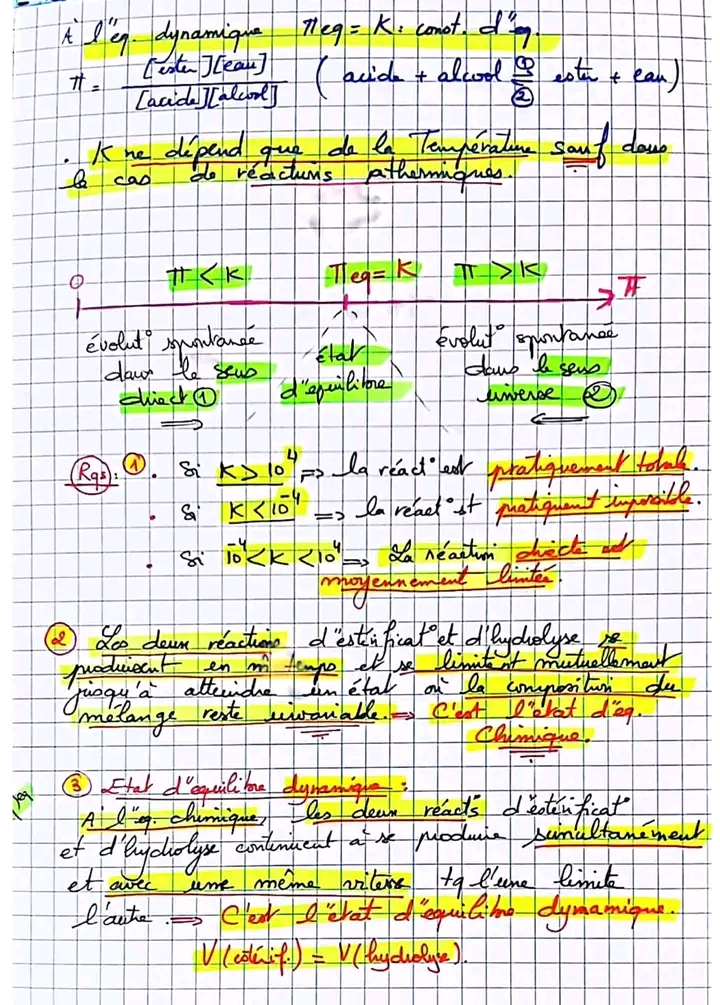 À l'éq. dynamique Πeq = K : const. d'éq.
Π = [ester][eau] / [acide][alcool] ( acide + alcool ①⇌② ester + eau )
. K ne dépend que de la Température sauf dans
le cas de réactions athermiques.
0 Π < K Πeq = K Π > K Π
évolut° spontanée état évolut° spontanée
dans le sens d'équilibre dans le sens
direct ① inverse ②
⇒ ⇐
Rqs : ① . Si K > 10⁴ => la réact° est pratiquement totale.
. Si K < 10⁻⁴ => la réact° est pratiquent impossible.
. Si 10⁻⁴ < K < 10⁴ => La réaction directe est
moyennement limitée.
② Les deux réactions d'estérificat° et d'hydrolyse se
produisent en m̂ temps et se limitent mutuellement
jusqu'à atteindre un état où la composition du
mélange reste invariable. => C'est l'état d'éq.
Chimique.
③ Etat d'équilibre dynamique :
A l'éq. chimique, les deux réacts d'estérificat°
et d'hydrolyse continuent à se produire simultanément
et avec une même vitesse tq l'une limite
l'autre => C'est l'état d'équilibre dynamique.
V(estérif.) = V(hydrolyse).